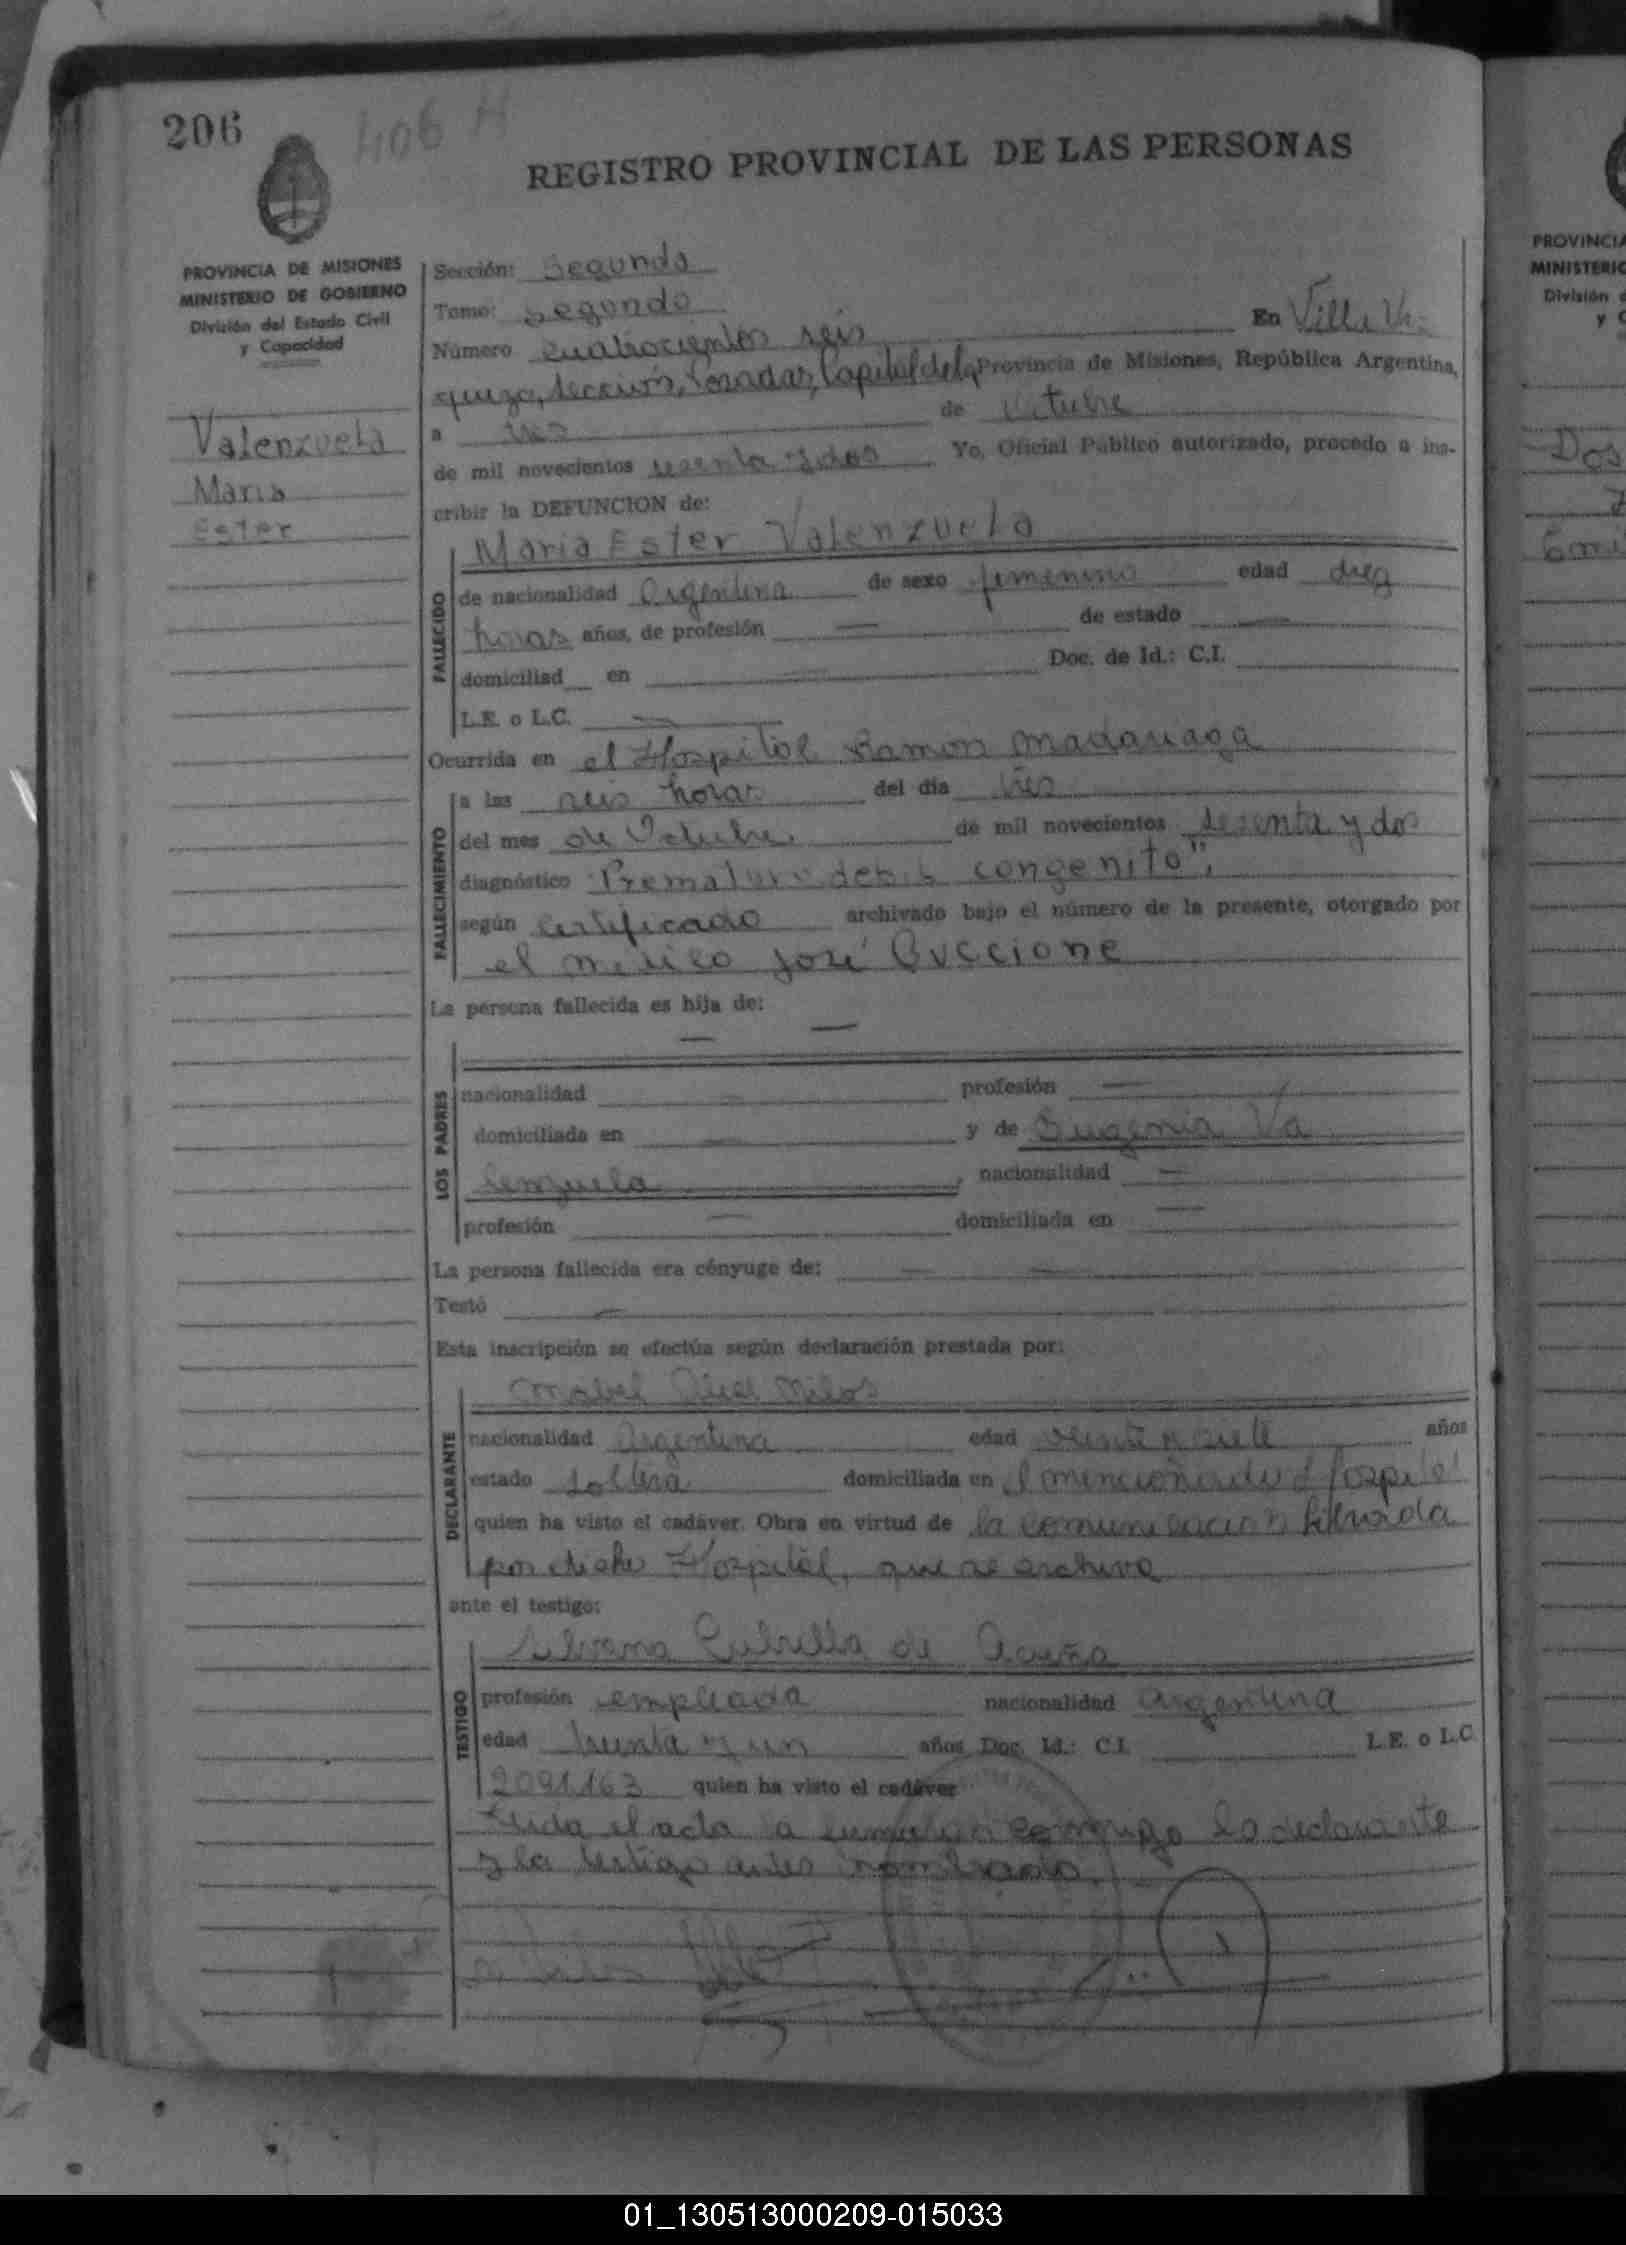 206
406 H
REGISTRO PROVINCIAL DE LAS PERSONAS
PROVINCIA DE MISIONES
MINISTERIO DE GOBIERNO
División del Estado Civil
y Capacidad
Valenzuela
Maria
Ester
Sección: Segunda
Tomo: Segundo
Número cuatrocientos seis En Villa Ur-
quiza, sección, Posadas, Capital de la Provincia de Misiones, República Argentina,
a tres de Octubre
de mil novecientos sesenta y dos Yo, Oficial Público autorizado, procedo a ins-
cribir la DEFUNCION de:
Maria Ester Valenzuela
FALLECIDO
de nacionalidad Argentina de sexo femenino edad diez
horas años, de profesión — de estado —
domiciliad en — Doc. de Id.: C.I.
L.E. o L.C. —
Ocurrida en el Hospital Ramon Madariaga
FALLECIMIENTO
a las seis horas del día tres
del mes de Octubre de mil novecientos sesenta y dos
diagnóstico "Prematuro debil congenito".
según certificado archivado bajo el número de la presente, otorgado por
el medico José Guccione
La persona fallecida es hija de:
— —
LOS PADRES
nacionalidad — profesión —
domiciliada en — y de Eugenia Va
lenzuela, nacionalidad —
profesión — domiciliada en —
La persona fallecida era cónyuge de: — —
Testó —
Esta inscripción se efectúa según declaración prestada por:
Mabel Milos
DECLARANTE
nacionalidad Argentina edad veinte y siete años
estado soltera domiciliada en el mencionado Hospital
quien ha visto el cadáver. Obra en virtud de la comunicacion librada
por dicho Hospital, que se archiva
ante el testigo:
Silvana de Acuña
TESTIGO
profesión empleada nacionalidad argentina
edad treinta y un años Doc. Id.: C.I. L.E. o L.C.
2091163 quien ha visto el cadáver
Leida el acta la conmigo la declarante
y la testigo antes nombrada.
PROVINCIA
MINISTERIO
División
y
Dos
Emi
01_130513000209-015033